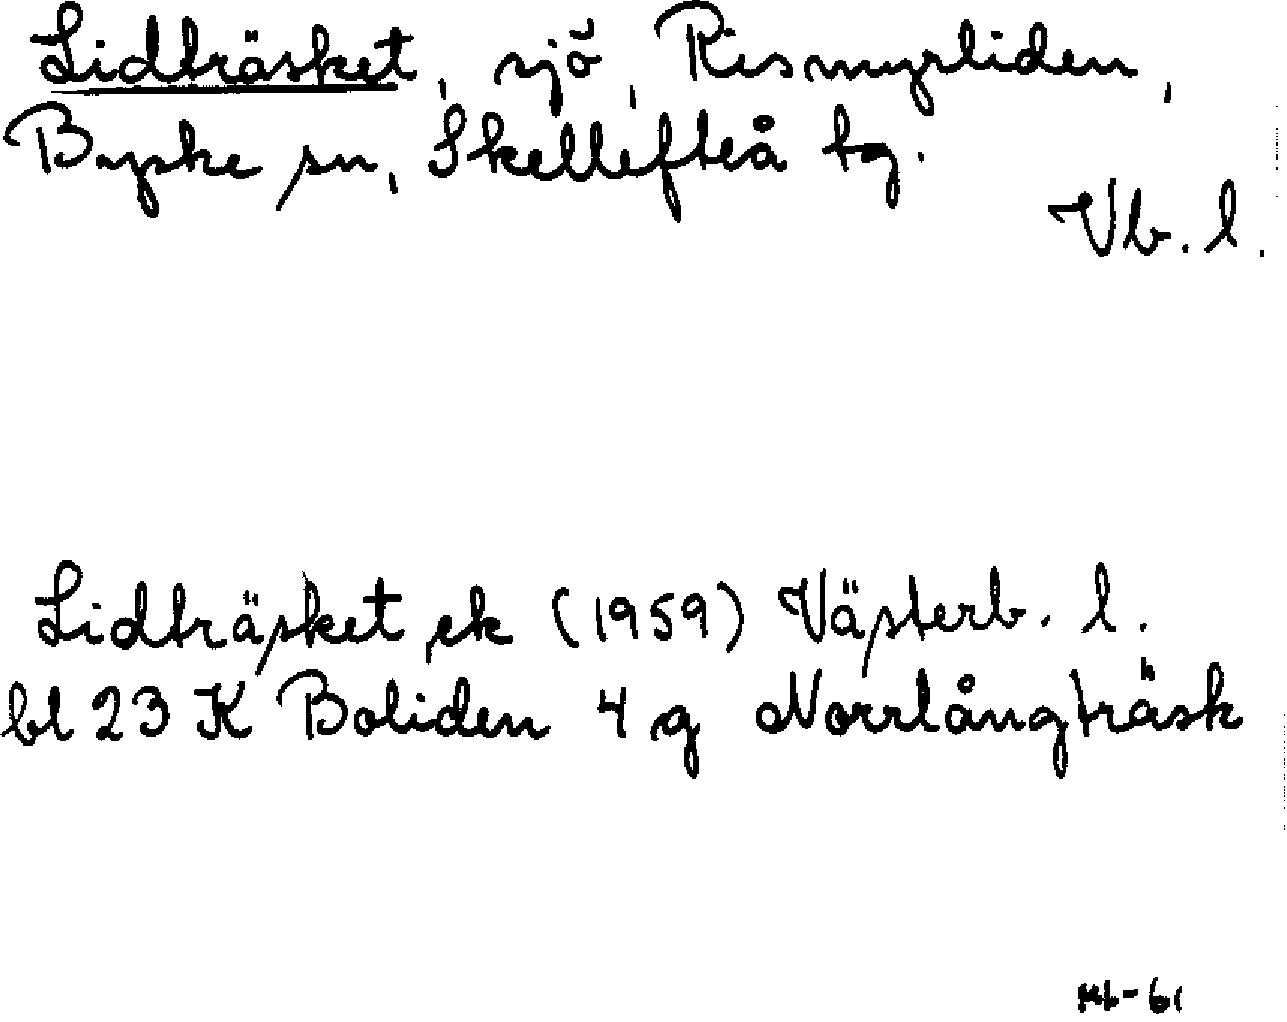 Lidträsket, sjö, Rismyrliden,
Byske sn, Skellefteå tg.
Vb. l.
Lidträsket ek (1959) Västerb. l.
bl 23 K Boliden 4 g Norrlångträsk